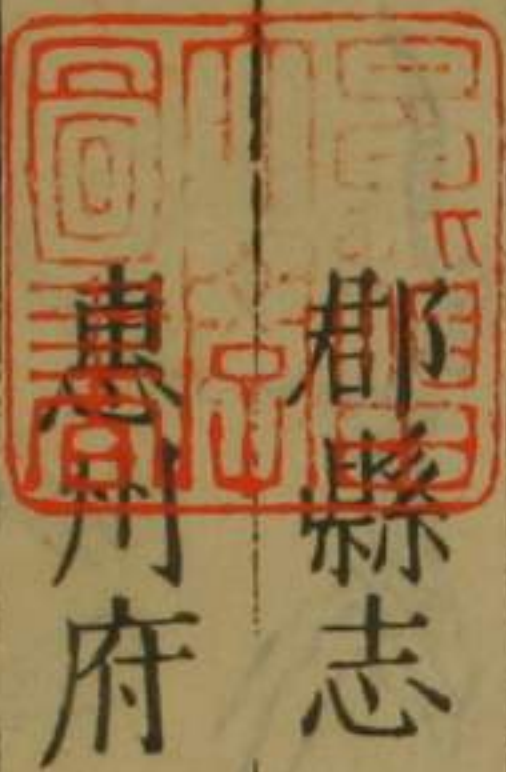 郡縣志
惠州府